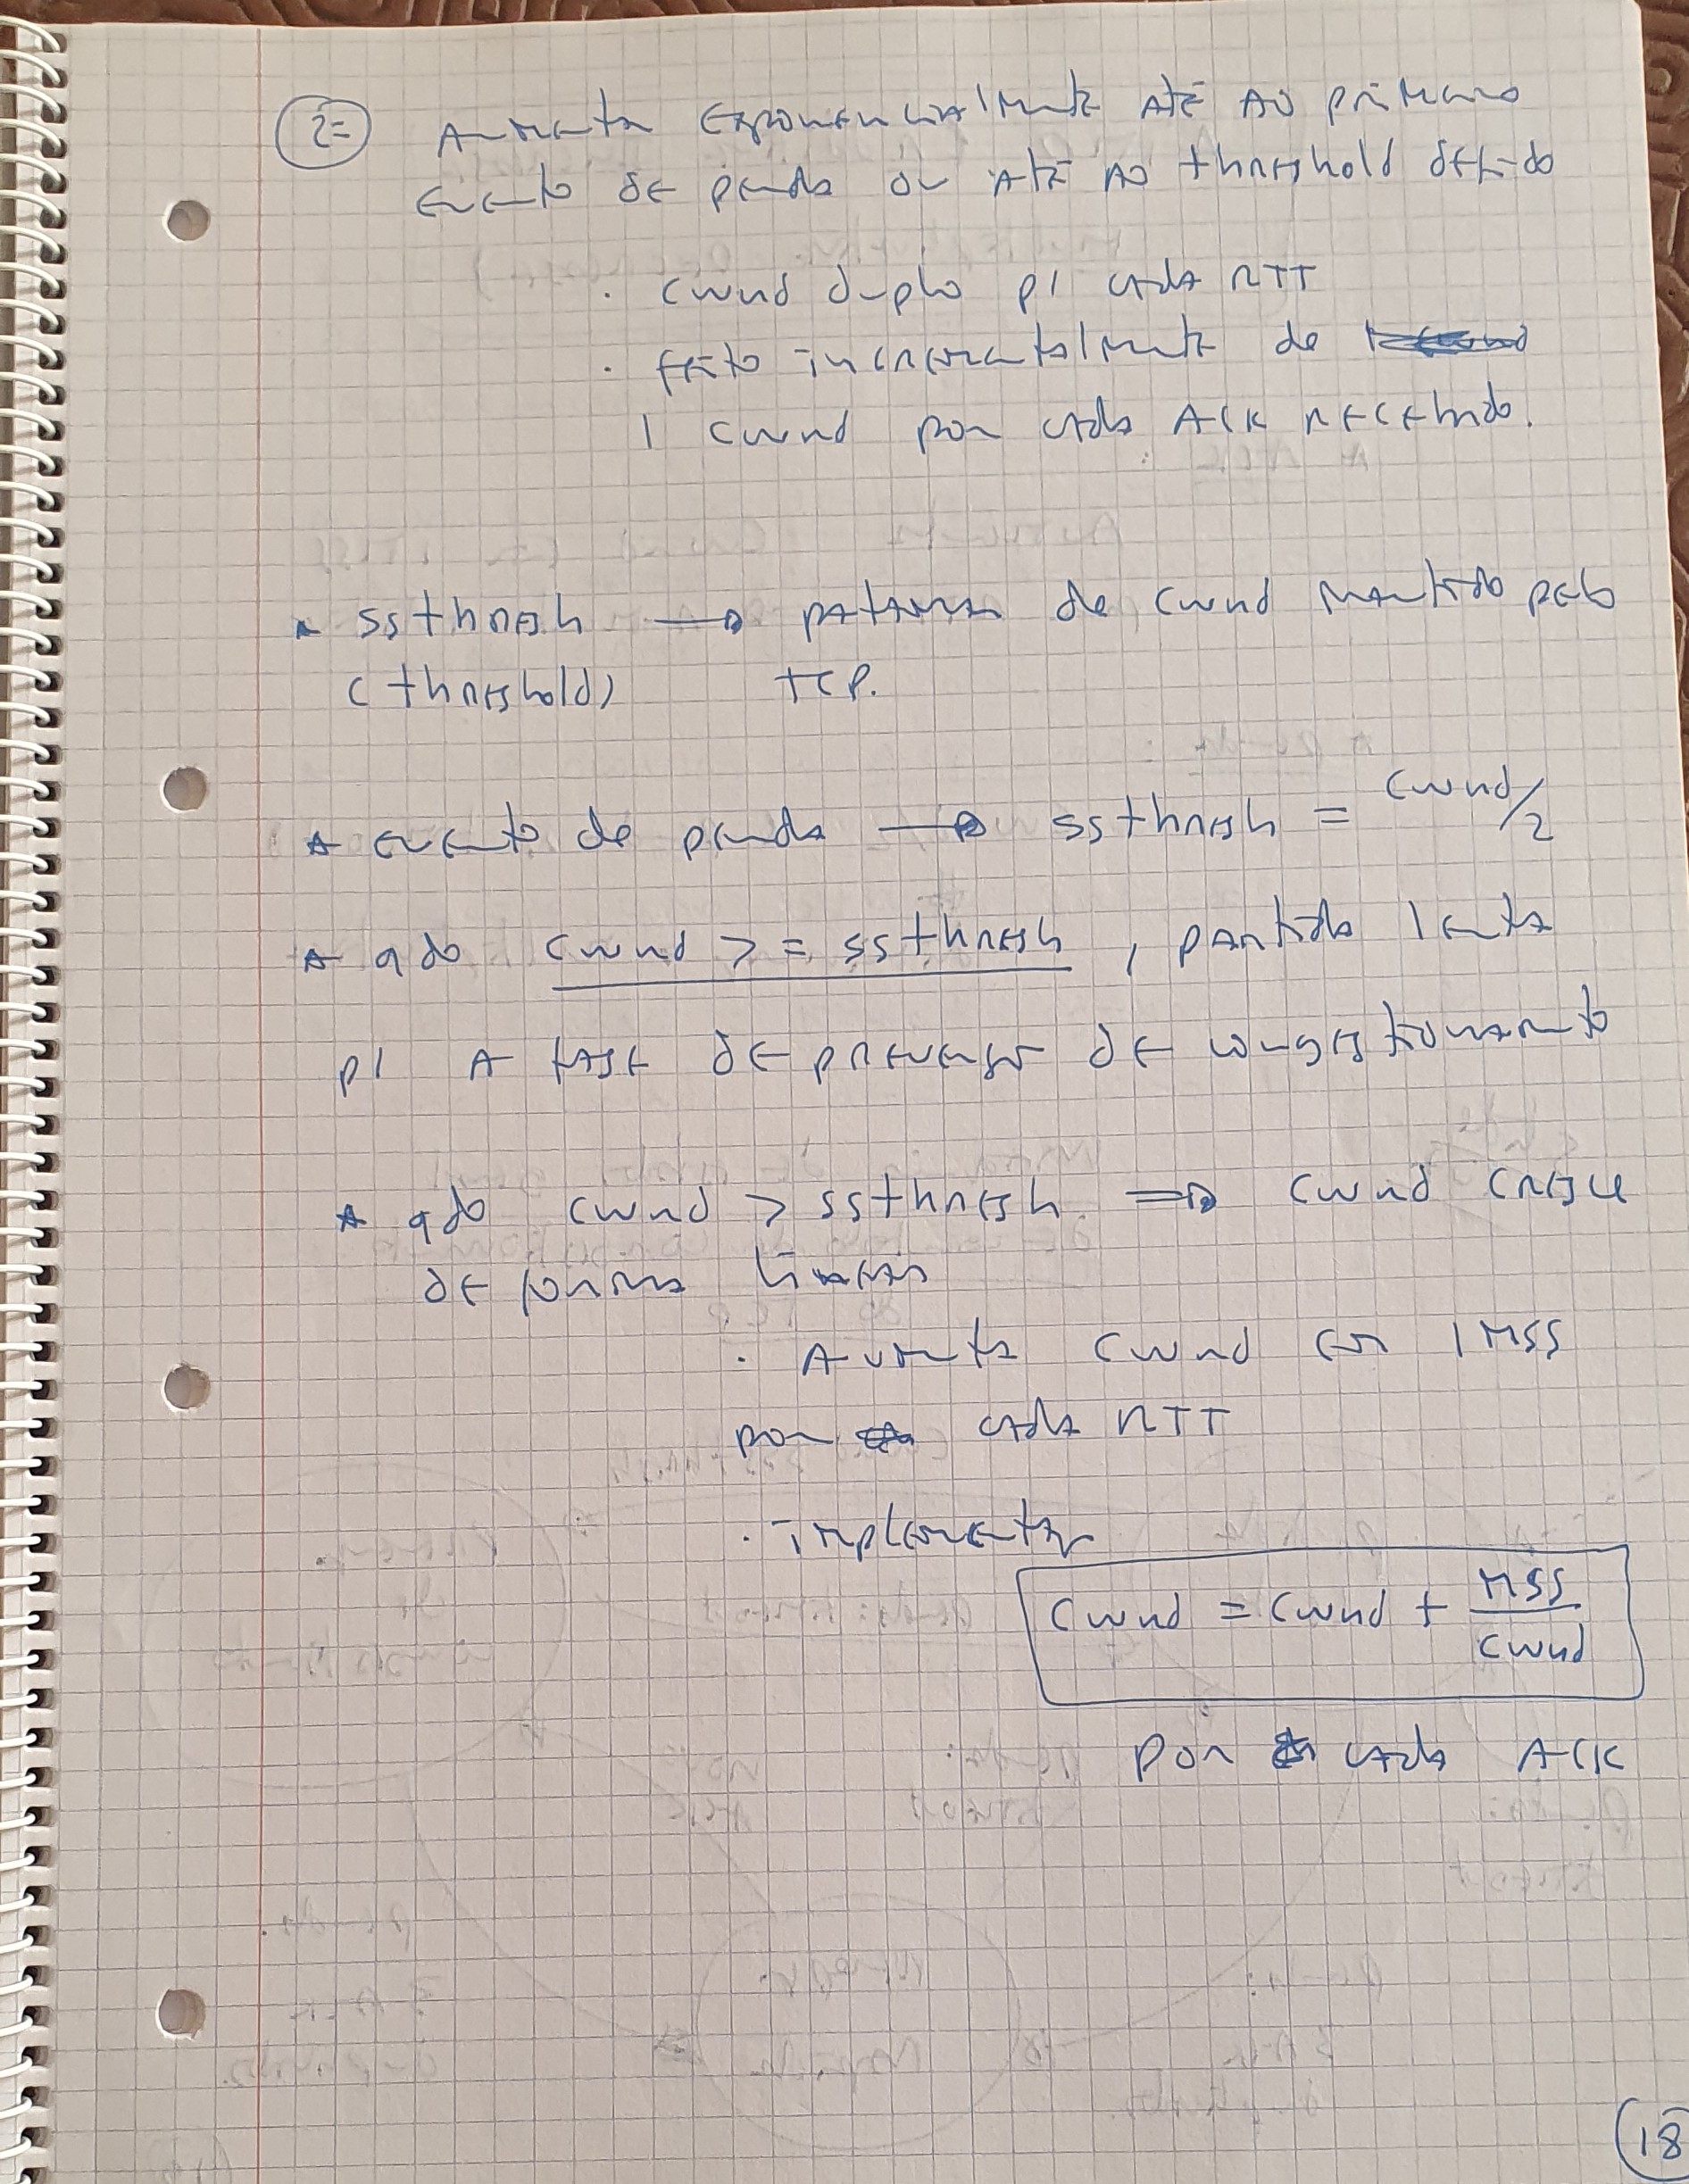 2=
Aumenta exponencialmente até ao primeiro
evento de perda ou até ao threshold defido
. cwnd duplo p/ cada RTT
. feito incrementalmente de
1 cwnd por cada ACK recebido.
ssthresh → patamar de cwnd mantido pelo
(threshold) TCP.
evento de perda → ssthresh = cwnd/2
qdo cwnd >= ssthresh, partida lenta
p/ a fase de prevenção de congestionamento
qdo cwnd > ssthresh ⇒ cwnd cresce
de forma linear
. Aumenta cwnd em 1 MSS
por cada RTT
. implementação
cwnd = cwnd + MSS/cwnd
por cada ACK
18